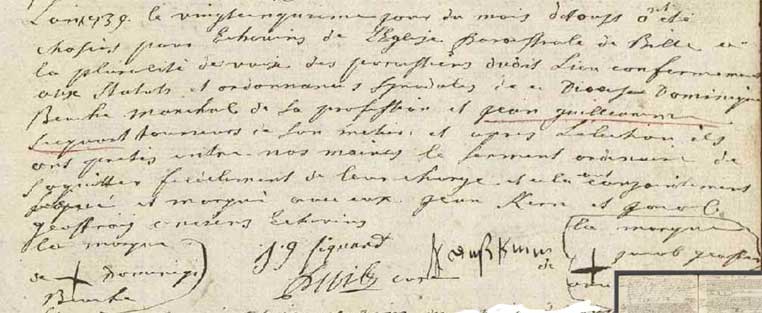 L'an 1739. le vingtcinquieme jour du mois d'Aoust ont été
choisis pour Echevins de l'Eglise Paroissiale de Bille a
la pluralité de voix des paroissiens dudit Lieu conformement
aux Statuts et ordonnances Synodales de ce Diocese Dominique
Benche marchal de sa profession et jean guilleaume
Siquart tourneur de son metier: et apres l'election ils
ont pretés entre nos mains le serment ordinaire de
s'aquitter fidelement de leur charge et ont conjointement
signé et marqué avec eux jean Kern et jacob
geoffroy anciens Echevins
la marque
de + Dominique
Benche
J g Siquart
curé
la marque
de + jacob geoffroy